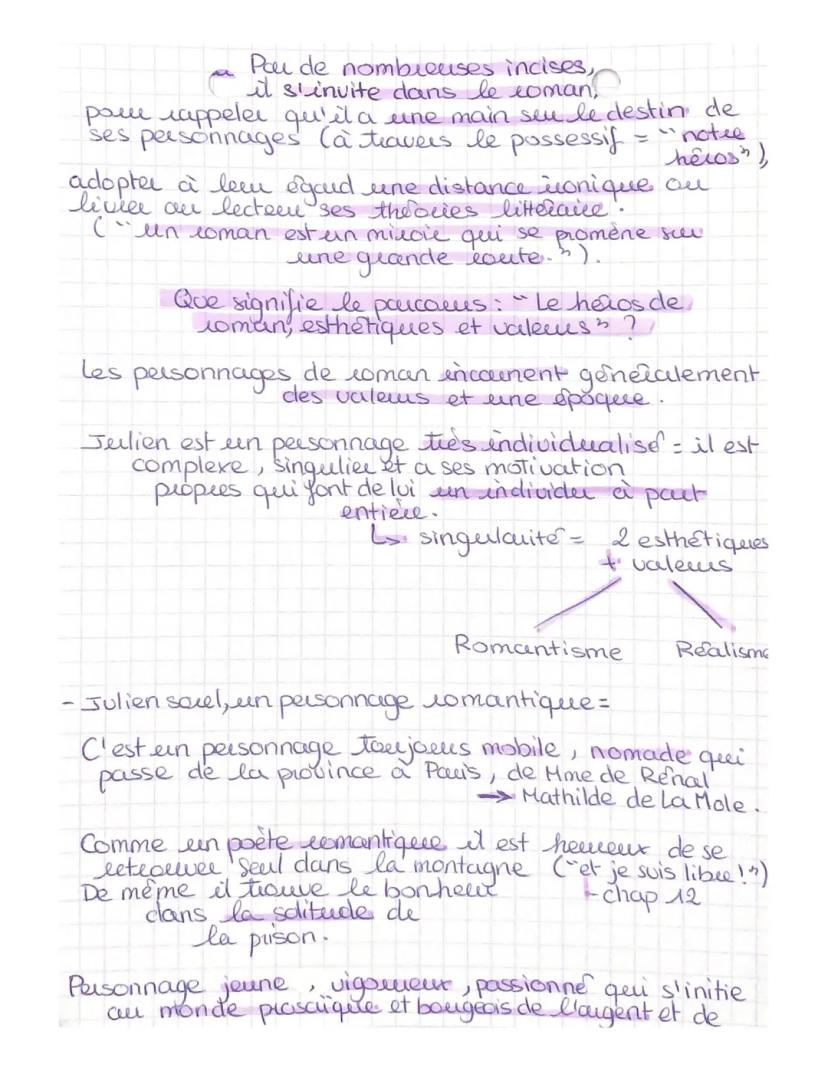 Par de nombreuses incises,
il s'invite dans le roman,
pour rappeler qu'il a une main sur le destin de
ses personnages (à travers le possessif = "notre
héros"),
adopter à leur égard une distance ironique ou
livrer au lecteur ses théories littéraire.
("un roman est un miroir qui se promène sur
une grande route.").
Que signifie le parcours : "Le héros de
roman, esthétiques et valeurs" ?
Les personnages de roman incarnent généralement
des valeurs et une époque.
Julien est un personnage très individualisé = il est
complexe, singulier et a ses motivation
propres qui font de lui un individu à part
entière.
↳ singularité = 2 esthétiques
+ valeurs
Romantisme Réalisme
- Julien sorel, un personnage romantique =
C'est un personnage toujours mobile, nomade qui
passe de la province à Paris, de Mme de Rênal
→ Mathilde de La Mole.
Comme un poète romantique il est heureux de se
retrouver seul dans la montagne ("et je suis libre !")
De même il trouve le bonheur - chap 12
dans la solitude de
la prison.
Personnage jeune, vigoureux, passionné qui s'initie
au monde et bourgeois de l'argent et de